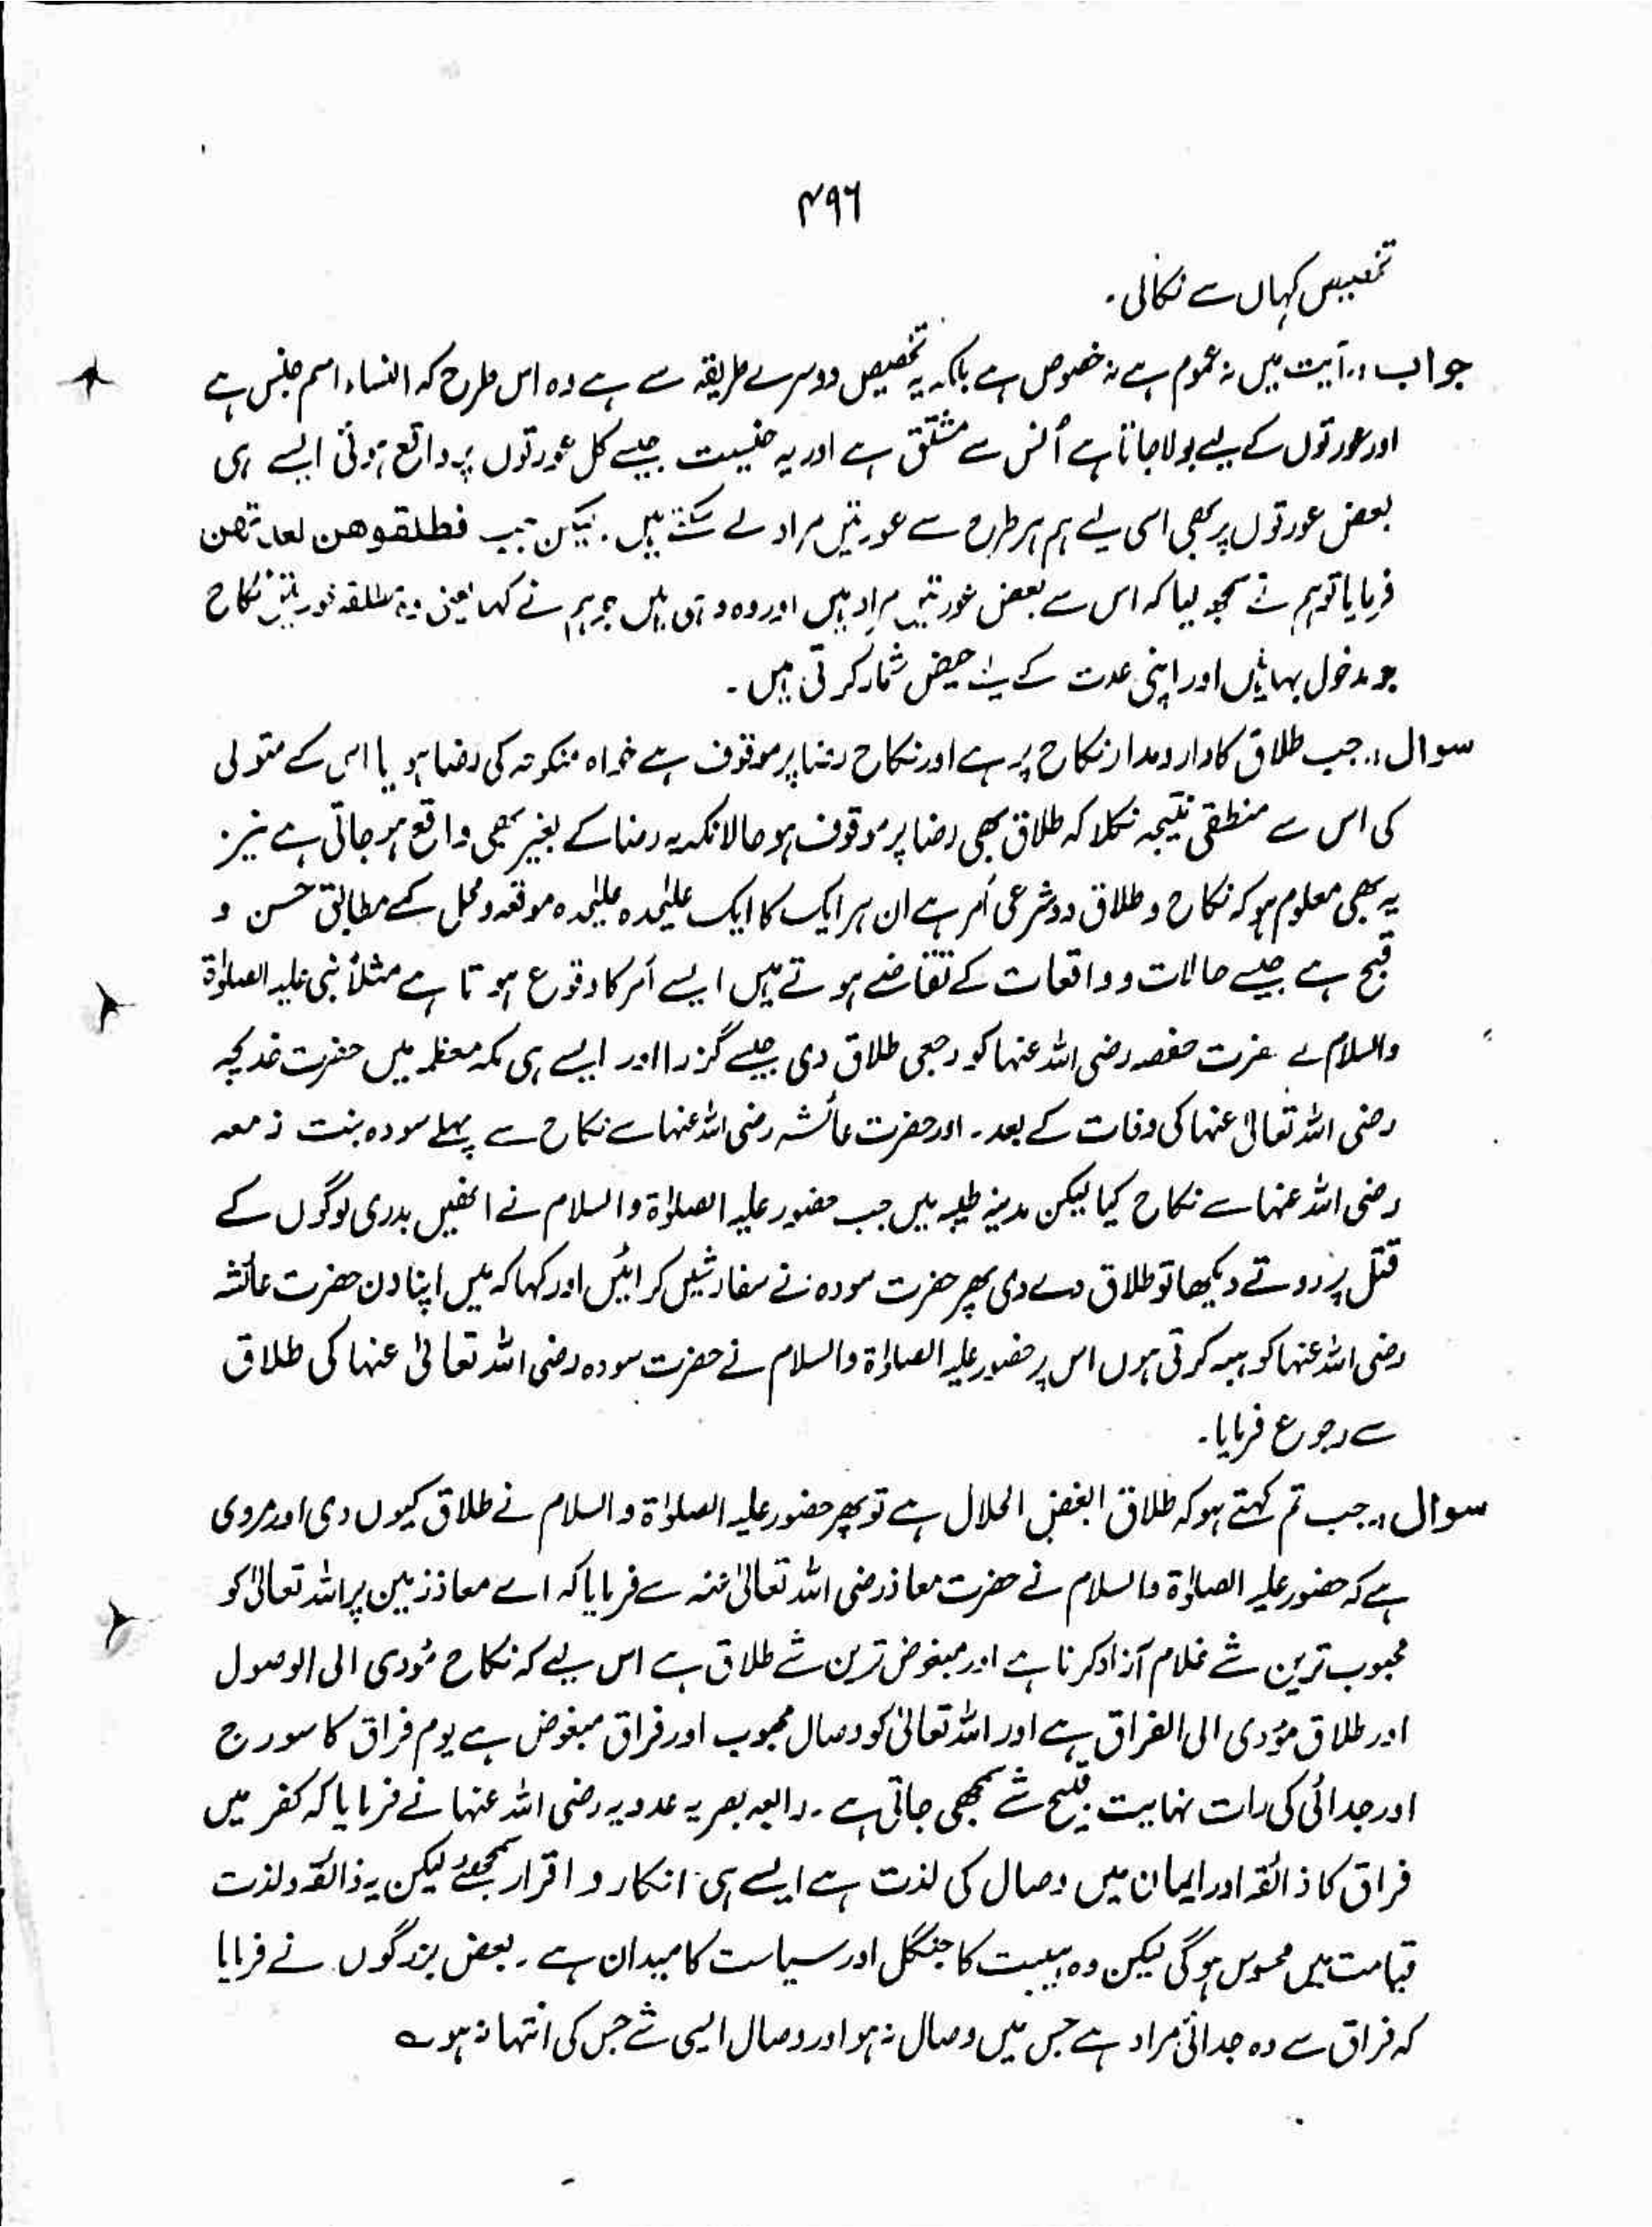 ۴۹۶
تخصیص کہاں سے نکالی۔
جواب :۔ آیت میں نہ عموم ہے نہ خصوص ہے بلکہ یہ تخصیص دوسرے طریقہ سے ہے وہ اس طرح کہ النساء اسم جنس ہے
اور عورتوں کے لیے بولا جاتا ہے اُنس سے مشتق ہے اور یہ جنسیت جیسے کل عورتوں پر واقع ہوئی ایسے ہی
بعض عورتوں پر بھی اسی لیے ہم ہر طرح سے عورتیں مراد لے سکتے ہیں۔ لیکن جب فطلقوھن لعدتھن
فرمایا تو ہم نے سمجھ لیا کہ اس سے بعض عورتیں مراد ہیں اور وہ وہی ہیں جو ہم نے کہا یعنی وہ مطلقہ عورتیں نکاح
جو مدخول بہا ہیں اور اپنی عدت کے لیے حیض شمار کرتی ہیں۔
سوال :۔ جب طلاق کا دارومدار نکاح پر ہے اور نکاح رضا پر موقوف ہے خواہ منکوحہ کی رضا ہو یا اس کے متولی
کی اس سے منطقی نتیجہ نکلا کہ طلاق بھی رضا پر موقوف ہو حالانکہ یہ رضا کے بغیر بھی واقع ہو جاتی ہے نیز
یہ بھی معلوم ہو کہ نکاح و طلاق دو شرعی اَمر ہے ان ہر ایک کا ایک علیٰحدہ علیٰحدہ موقعہ و محل کے مطابق حسن و
قبح ہے جیسے حالات و واقعات کے تقاضے ہوتے ہیں ایسے اَمر کا وقوع ہوتا ہے مثلاً نبی علیہ الصلوٰۃ
والسلام نے حضرت حفصہ رضی اللہ عنہا کو رجعی طلاق دی جیسے گزرا اور ایسے ہی مکہ معظمہ میں حضرت خدیجہ
رضی اللہ تعالیٰ عنہا کی وفات کے بعد۔ اور حضرت عائشہ رضی اللہ عنہا سے نکاح سے پہلے سودہ بنت زمعہ
رضی اللہ عنہا سے نکاح کیا لیکن مدینہ طیبہ میں جب حضور علیہ الصلوٰۃ والسلام نے انھیں بدری لوگوں کے
قتل پر روتے دیکھا تو طلاق دے دی پھر حضرت سودہ نے سفارشیں کرائیں اور کہا کہ میں اپنا دن حضرت عائشہ
رضی اللہ عنہا کو ہبہ کرتی ہوں اس پر حضور علیہ الصلوٰۃ والسلام نے حضرت سودہ رضی اللہ تعالیٰ عنہا کی طلاق
سے رجوع فرمایا۔
سوال :۔ جب تم کہتے ہو کہ طلاق ابغض الحلال ہے تو پھر حضور علیہ الصلوٰۃ والسلام نے طلاق کیوں دی اور مروی
ہے کہ حضور علیہ الصلوٰۃ والسلام نے حضرت معاذ رضی اللہ تعالیٰ عنہ سے فرمایا کہ اے معاذ زمین پر اللہ تعالیٰ کو
محبوب ترین شے غلام آزاد کرنا ہے اور مبغوض ترین شے طلاق ہے اس لیے کہ نکاح مؤدی الی الوصول
اور طلاق مؤدی الی الفراق ہے اور اللہ تعالیٰ کو وصال محبوب اور فراق مبغوض ہے یوم فراق کا سورج
اور جدائی کی رات نہایت قبیح شے سمجھی جاتی ہے۔ رابعہ بصریہ عدویہ رضی اللہ عنہا نے فرمایا کہ کفر میں
فراق کا ذائقہ اور ایمان میں وصال کی لذت ہے ایسے ہی انکار و اقرار سمجھئے لیکن یہ ذائقہ و لذت
قیامت میں محسوس ہوگی لیکن وہ ہیبت کا جنگل اور سیاست کا میدان ہے۔ بعض بزرگوں نے فرمایا
کہ فراق سے وہ جدائی مراد ہے جس میں وصال نہ ہو اور وصال ایسی شے جس کی انتہا نہ ہو ؎